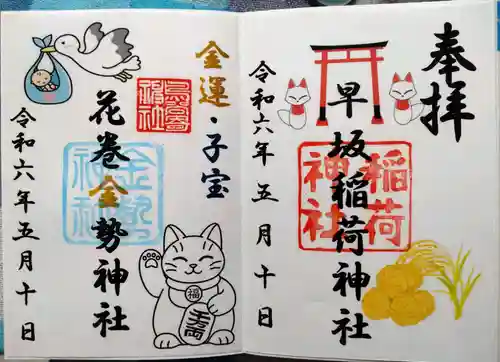 奉拝
早坂稲荷神社
稲荷神社
令和六年五月十日
金運・子宝
花巻金勢神社
金勢神社
令和六年五月十日
福